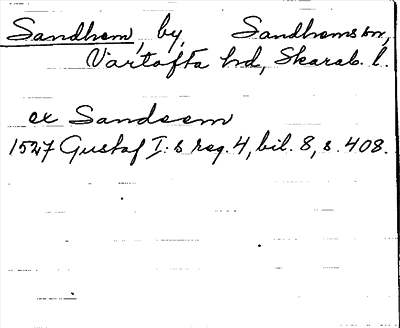 Sandhem, by, Sandhems sn,
Vartofta hd, Skarab. l.
ex Sandeem
1527 Gustaf I:s reg. 4, bil. 8, s. 408.